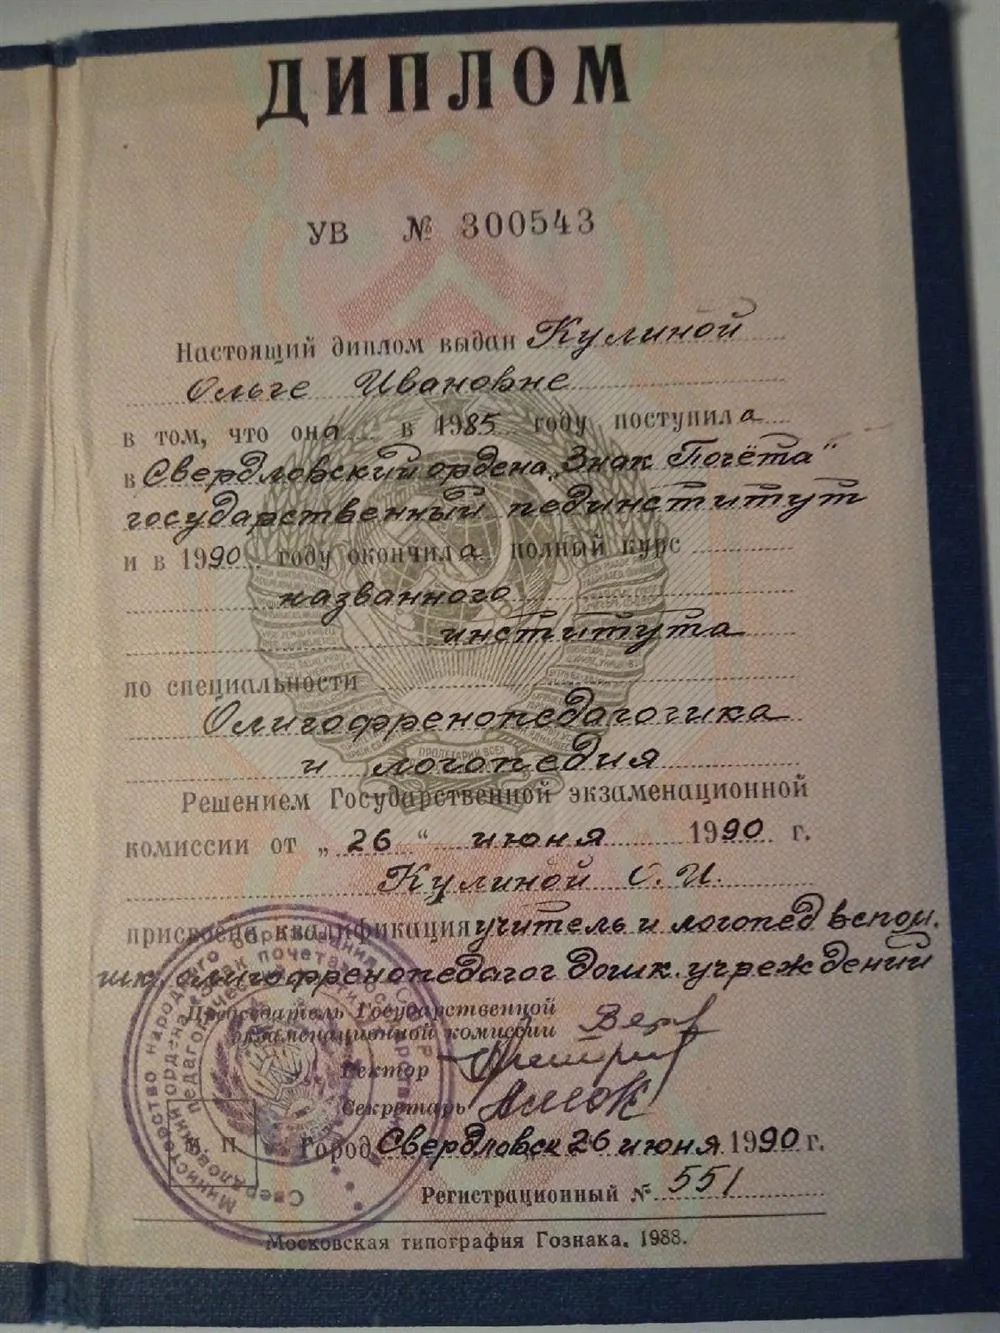 ДИПЛОМ
УВ № 300543
Настоящий диплом выдан Кулиной
Ольге Ивановне
в том, что она в 1985 году поступила
в Свердловский ордена „Знак Почёта"
государственный пединститут
и в 1990 году окончила полный курс
названного
института
по специальности
Олигофренопедагогика
и логопедия
Решением Государственной экзаменационной
комиссии от „26" июня 1990 г.
Кулиной О.И.
присвоена квалификация учитель и логопед вспом.
шк. олигофренопедагог дошк. учреждений
Председатель Государственной
экзаменационной комиссии
Ректор
Секретарь
М П
Город Свердловск 26 июня 1990 г.
Регистрационный № 551
Московская типография Гознака. 1988.